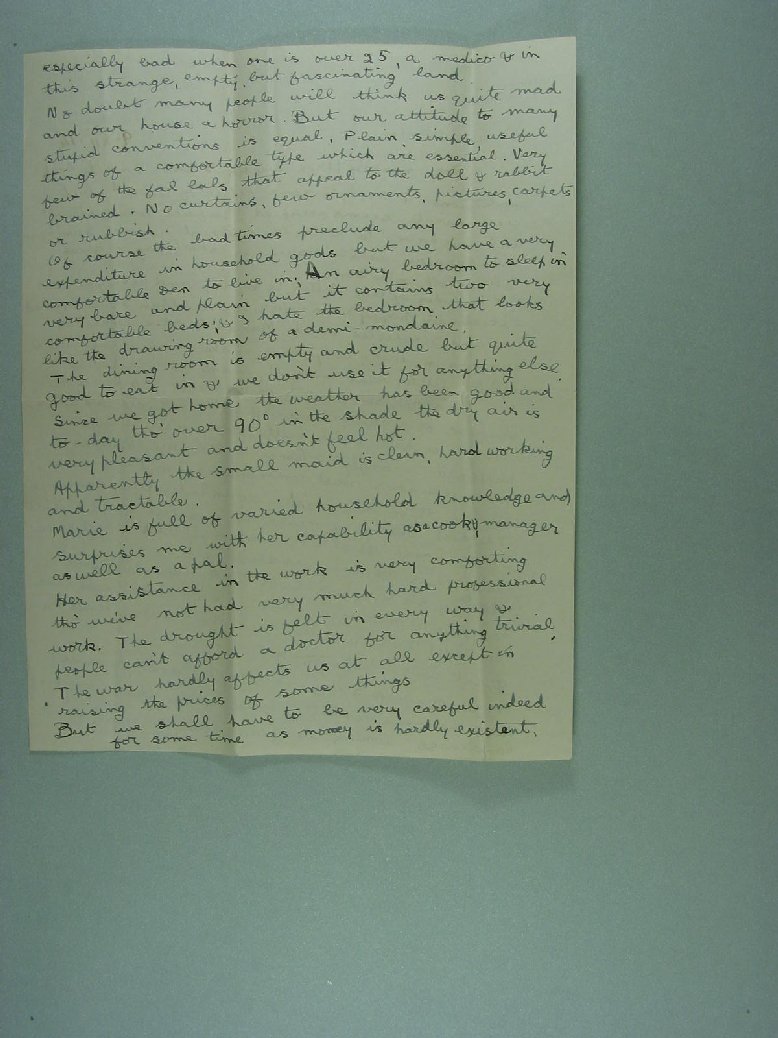 especially bad when one is over 25, a medico & in
this strange, empty, but fascinating land.
No doubt many people will think us quite mad
and our house a horror. But our attitude to many
stupid conventions is equal. Plain, simple, useful
things of a comfortable type which are essential. Very
few of the fal lals that appeal to the doll & rabbit
brained. No curtains, few ornaments, pictures, carpets
or rubbish.
Of course the bad times preclude any large
expenditure in household gods but we have a very
comfortable den to live in; An airy bedroom to sleep in
very bare and plain but it contains two very
comfortable beds; I hate the bedroom that looks
like the drawing room of a demi-mondaine.
The dining room is empty and crude but quite
good to eat in & we don't use it for anything else.
Since we got home, the weather has been good and
to-day tho' over 90° in the shade the dry air is
very pleasant and doesn't feel hot.
Apparently the small maid is clean, hard working
and tractable.
Marie is full of varied household knowledge and
surprises me with her capability as a cook & manager
as well as a pal.
Her assistance in the work is very comforting
tho' we've not had very much hard professional
work. The drought is felt in every way &
people can't afford a doctor for anything trivial.
The war hardly affects us at all except in
raising the prices of some things
But we shall have to be very careful indeed
for some time as money is hardly existent.